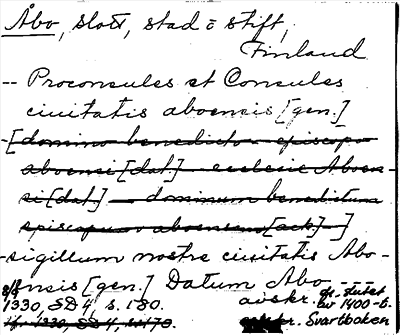 Åbo, slott, stad o stift,
Finland
-- Proconsules et Consules
ciuitatis aboensis [gen.]
-[domino benedicto episcopo
aboensi [dat.] -- ecclesie Aboen-
si [dat.] -- dominum benedictum
episcopum aboensem [ack.] --]
-sigillum nostre ciuitatis Abo-
ensis [gen.] Datum Abo ---
8/8 1330, SD 4, s. 180. avskr. fr. slutet
av 1400-t.
1330, SD 4, s. 170. avskr. Svartboken